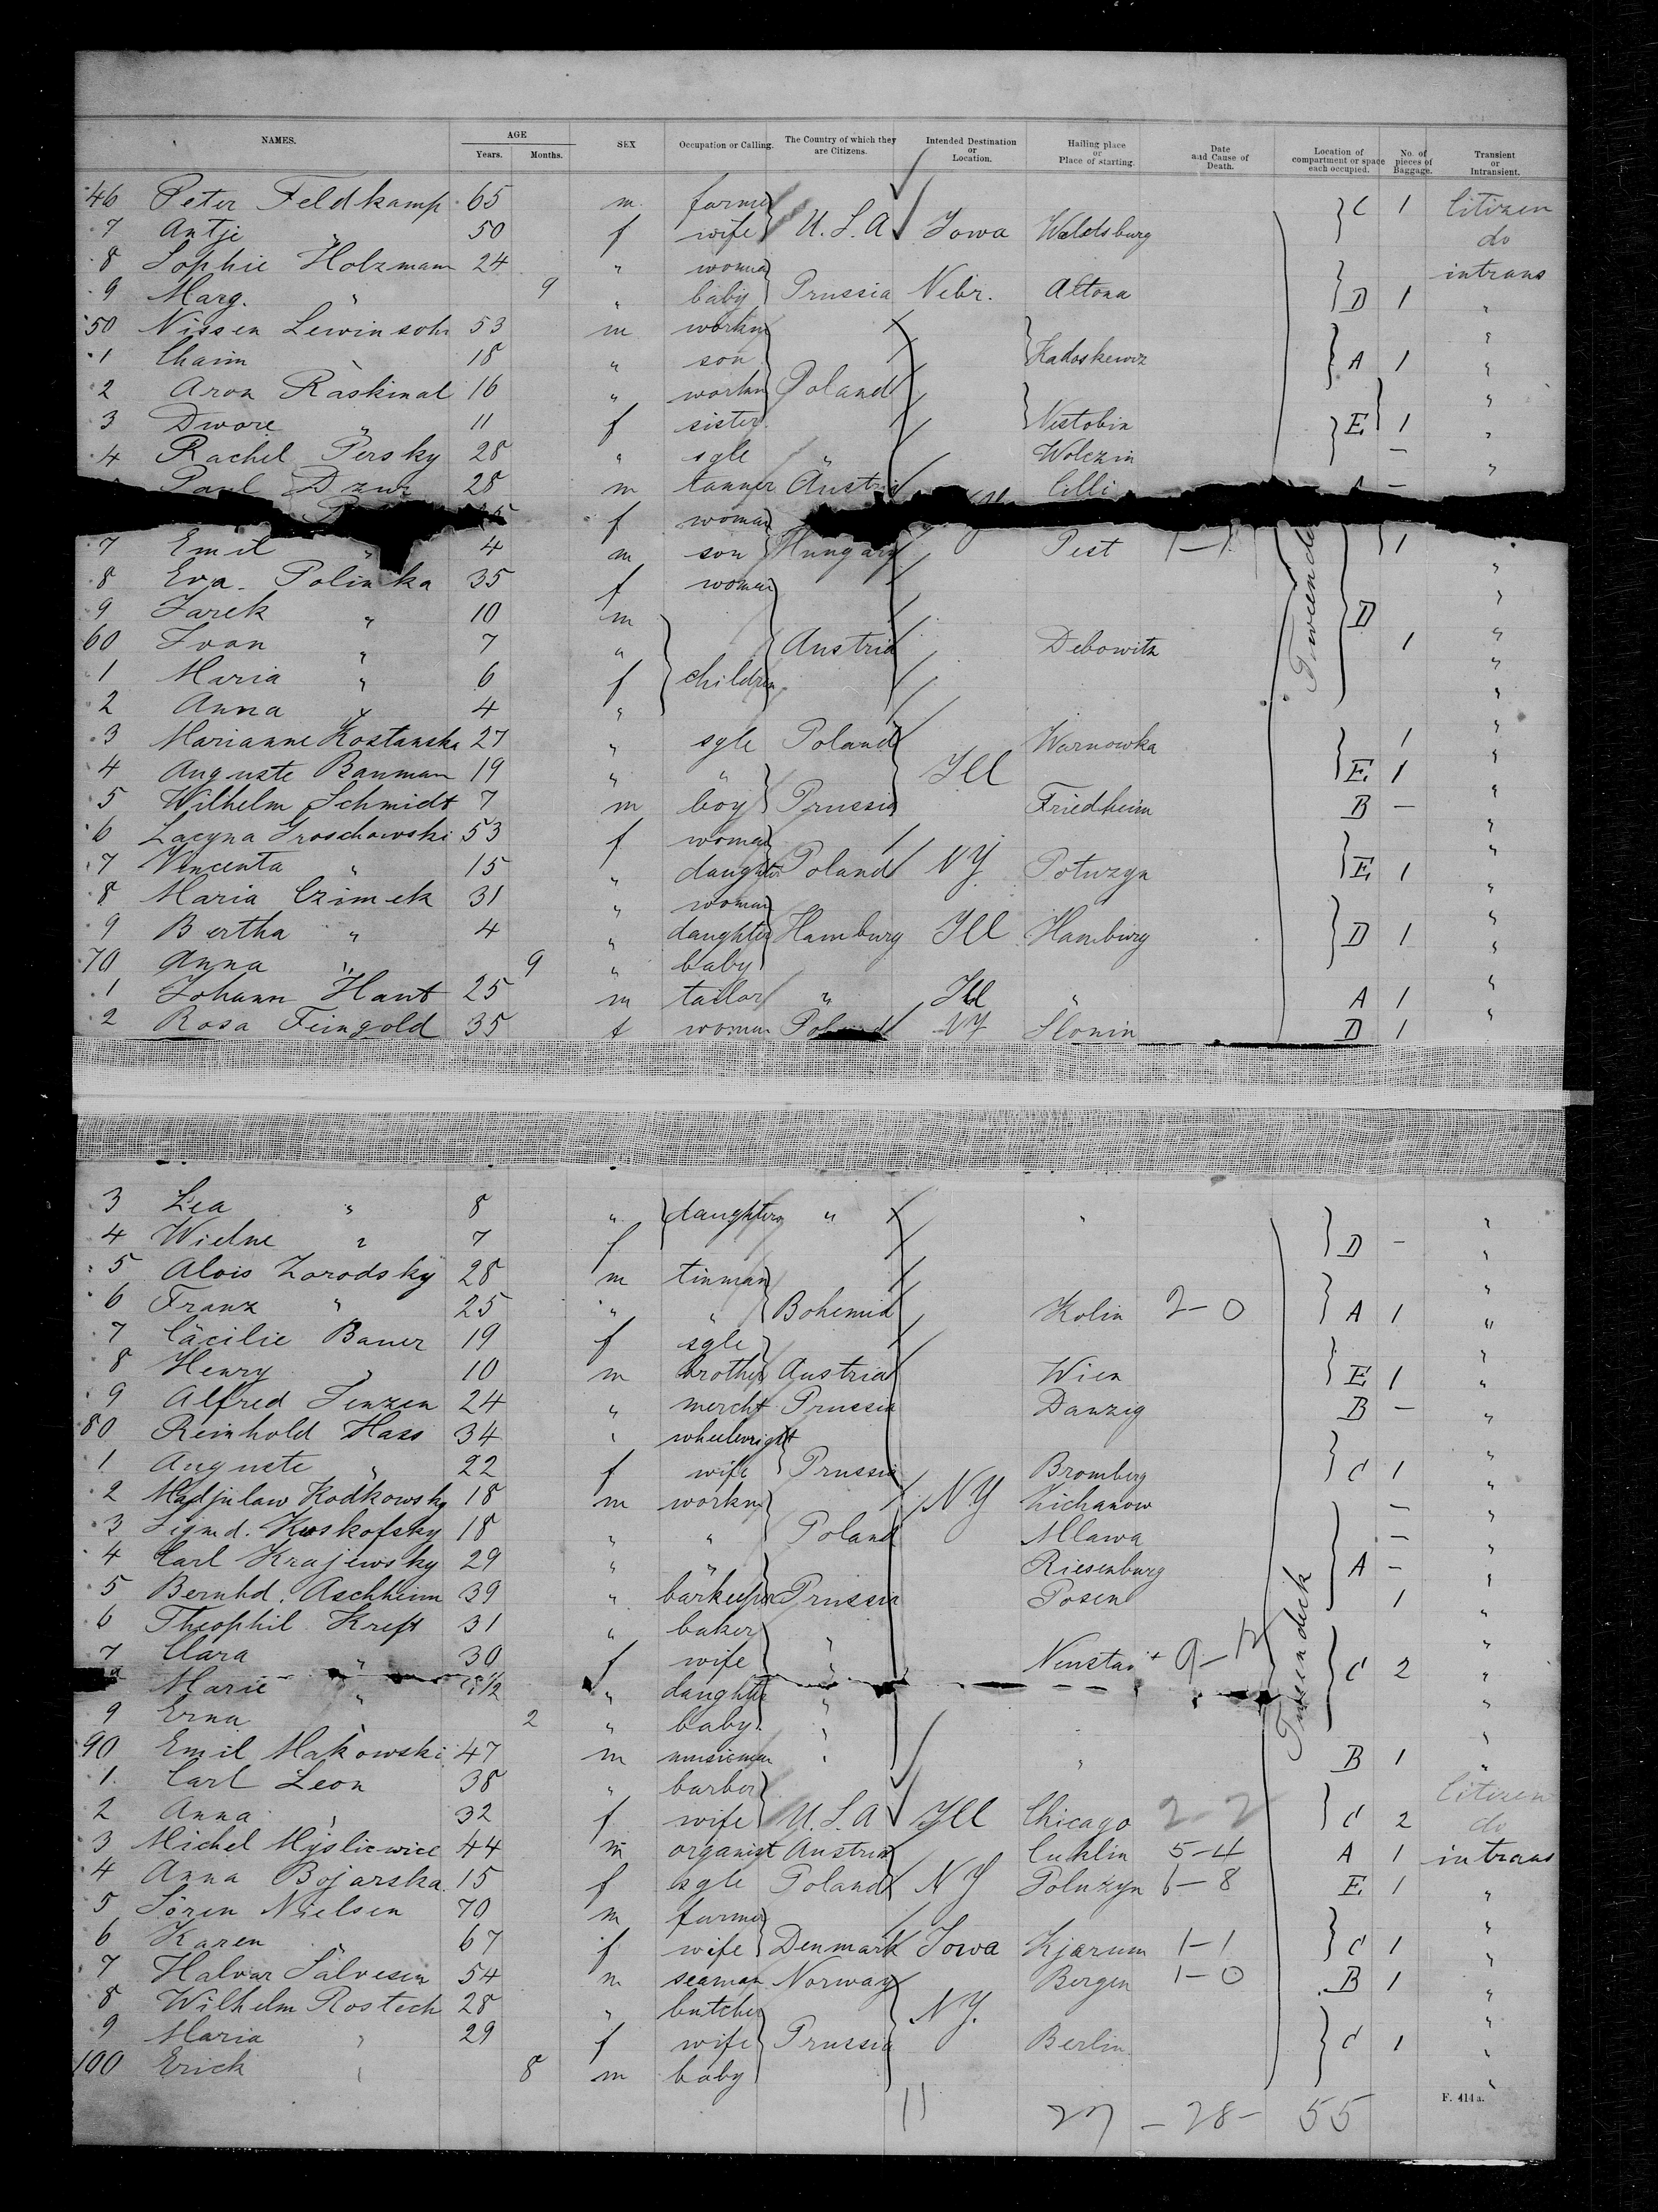 NAMES. AGE Years. Months. SEX Occupation or Calling. The Country of which they are Citizens. Intended Destination or Location. Hailing place or Place of starting. Date and Cause of Death. Location of compartment or space each occupied. No. of pieces of Baggage. Transient or Intransient.
46 Peter Feldkamp 65 m farmer C 1 Citizen
7 Antje " 50 f wife U.S.A Iowa do
8 Sophie Holzmann 24 " woman intrans
9 Marg. " 9 " baby Prussia Nebr. Altona D 1 "
50 Nissen Lewinsohn 53 m workm "
1 Chaim " 18 " son A 1 "
2 Aron Raskinal 16 " workm Poland "
3 Dwore " 11 f sister E 1 "
4 Rachel Persky 28 " sgle " Wolczin — "
Paul 28 m tanner Austria Cilli A — "
f woman
7 Emil " 4 m son Hungary Pest 1-1 1 "
8 Eva Polinka 35 f woman "
9 Jarek " 10 m D "
60 Ivan " 7 " Austria Debowitz 1 "
1 Maria " 6 f children "
2 Anna " 4 " "
3 Marianne Kostanska 27 " sgle Poland Warnowka 1 "
4 Auguste Bauman 19 " " Ill E 1 "
5 Wilhelm Schmidt 7 m boy Prussia Friedheim B — "
6 Lacyna Groschowski 53 f woman "
7 Vincenta " 15 " daughter Poland NY Potuzyn E 1 "
8 Maria Czimek 31 " woman "
9 Bertha " 4 " daughter Hamburg Ill Hamburg D 1 "
70 Anna " 9 " baby "
1 Johann Hant 25 m tailor " Ill " A 1 "
2 Rosa Feingold 35 f woman Poland NY Slonin D 1 "
3 Lea " 8 " daughters " " "
4 Wielne " 7 f D — "
5 Alois Zorodsky 28 m tinman "
6 Franz " 25 " " Bohemia Kolin 2-0 A 1 "
7 Cäcilie Bauer 19 f sgle "
8 Henry " 10 m brother Austria Wien E 1 "
9 Alfred Jenzen 24 " mercht Prussia Danzig B — "
80 Reinhold Hass 34 " wheelwright "
1 Auguste " 22 f wife Prussia Bromberg C 1 "
2 Kodkowsky 18 m workm NY Zichanow — "
3 Sigmd. Koskofsky 18 " " Poland Mlawa — "
4 Carl Krajewsky 29 " " Riesenburg A — "
5 Bernhd. Aschheim 39 " barkeeper Prussia Posen 1 "
6 Theophil Kreft 31 " baker "
7 Clara " 30 f wife " Neustadt 9-17 C 2 "
Marie " " daughter " "
9 Erna " 2 " baby " "
90 Emil Makowski 47 m musicman " " B 1 "
1 Carl Leon 38 " barber Citizen
2 Anna " 32 f wife U.S.A Ill Chicago 2-2 C 2 do
3 Michel Myslicwicz 44 m organist Austria 5-4 A 1 intrans
4 Anna Bojarska 15 f sgle Poland NY Potuzyn 6-8 E 1 "
5 Sören Nielsen 70 m farmer "
6 Karen " 67 f wife Denmark Iowa Kjarum 1-1 C 1 "
7 Halvar Salvesen 54 m seaman Norway Bergen 1-0 B 1 "
8 Wilhelm Rostech 28 " butcher NY. "
9 Maria " 29 f wife Prussia Berlin C 1 "
100 Erick " 8 m baby "
Tweendeck
Tweendeck
11 27-28-55
F. 414a.